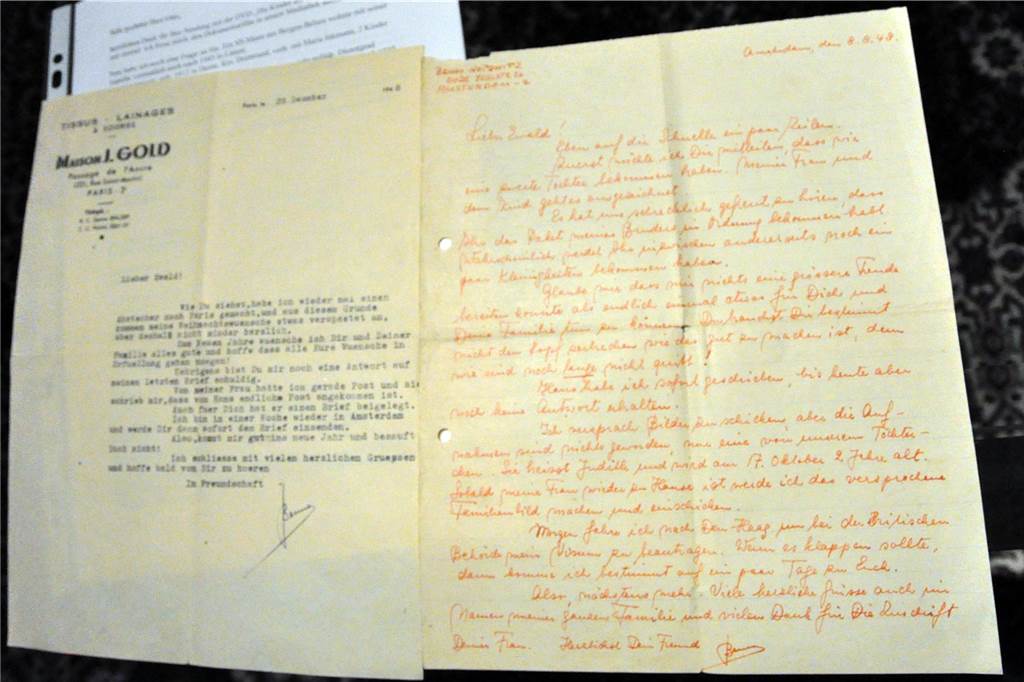 TISSUS - LAINAGES
MAISON J. GOLD
Passage de l'Ancre
PARIS-3
Paris, le 28 Dezember 1948
Lieber Ewald!
Wie Du siehst, habe ich wieder mal einen
Abstecher nach Paris gemacht, und aus diesem Grunde
kommen meine Weihnachtswuensche etwas verspaetet an,
aber deshalb nicht minder herzlich.
Zum Neuen Jahre wuensche ich Dir und Deiner
Familie alles gute und hoffe dass alle Eure Wuensche in
Erfuellung gehen moegen!
Uebrigens bist Du mir noch eine Antwort auf
meinen letzten Brief schuldig.
Von meiner Frau hatte ich gerade Post und sie
schrieb mir, dass von Hans endliche Post angekommen ist.
Auch fuer Dich hat er einen Brief beigelegt.
Ich bin in einer Woche wieder in Amsterdam
und werde Dir dann sofort den Brief einsenden.
Also, kommt mir gut ins neue Jahr und besauft
Euch nicht!
Ich schliesse mit vielen herzlichen Gruessen
und hoffe bald von Dir zu hoeren
In Freundschaft
Benno
Amsterdam, den 8.8.48.
AMSTERDAM-Z
Lieber Ewald!
Eben auf die Schnelle ein paar Zeilen.
Zuerst möchte ich Dir mitteilen, dass wir
eine zweite Tochter bekommen haben. Meiner Frau und
dem Kind geht es ausgezeichnet.
Es hat uns schrecklich gefreut zu hören, dass
Ihr das Paket meines Bruders in Ordnung bekommen habt.
Wahrscheinlich werdet Ihr inzwischen andererseits noch ein
paar Kleinigkeiten bekommen haben.
Glaube mir dass mir nichts eine grössere Freude
bereiten konnte als endlich einmal etwas für Dich und
Deine Familie tun zu können. Du
nicht den Kopf zerbrechen wie das gut zu machen ist, denn
wir sind noch lange nicht quitt!
Hans habe ich sofort geschrieben, bis heute aber
noch keine Antwort erhalten.
Ich versprach Bilder zu schicken, aber die Auf-
nahmen sind nichts geworden, nur eine von unserem Töchter-
chen. Sie heisst Judith und wird am 17. Oktober 2 Jahre alt.
Sobald meine Frau wieder zu Hause ist werde ich das versprochene
Familienbild machen und einschicken.
Morgen fahre ich nach Den-Haag um bei der Britischen
Behörde mein Visum zu beantragen. Wenn es klappen sollte,
dann komme ich bestimmt auf ein paar Tage zu Euch.
Also, nächstens mehr. Viele herzliche Grüsse auch im
Namen meiner ganzen Familie und vielen Dank für Die Zuschrift
Deiner Frau. Herzlichst Dein Freund Benno